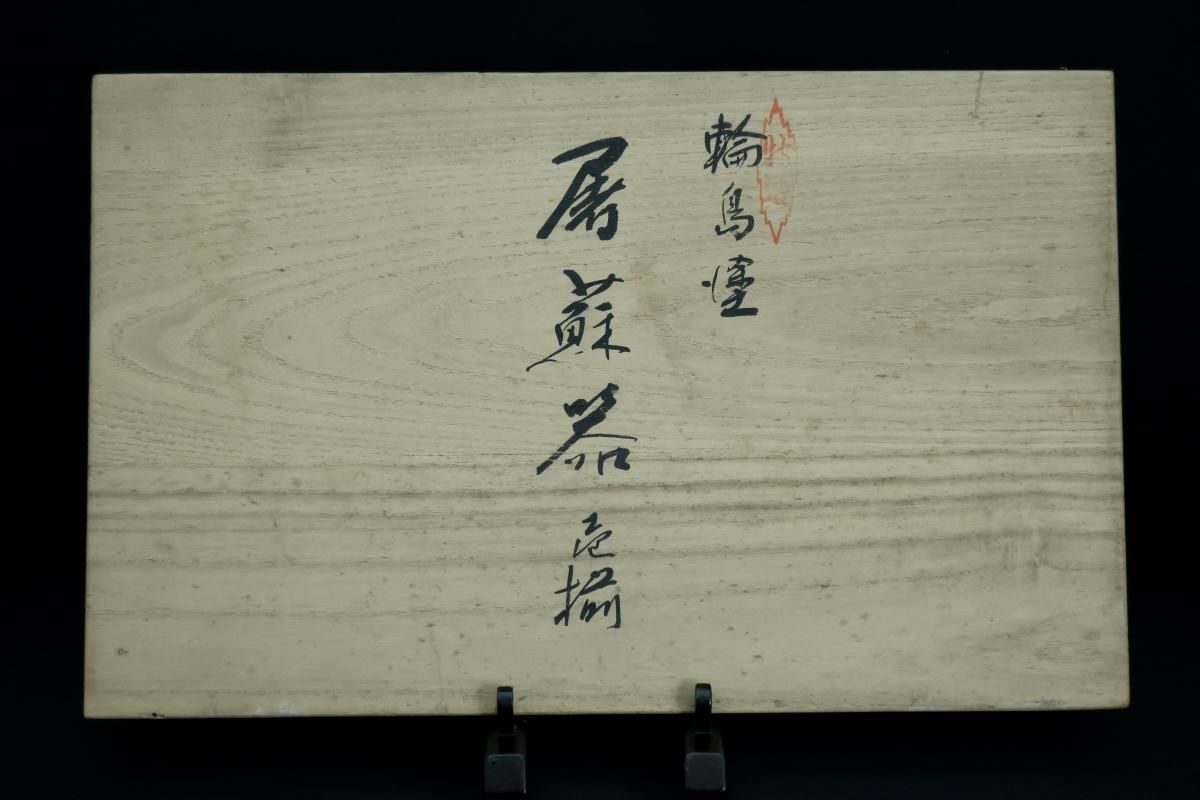 輪島塗
屠蘇器 壱揃